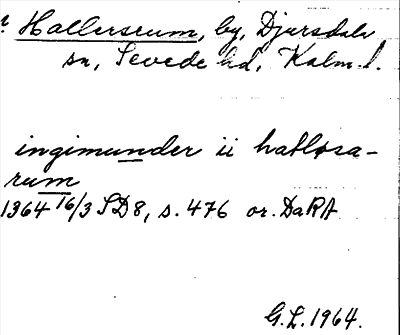 Hallersrum, by, Djursdala
sn, Sevede hd, Kalm. l.
ingimunder ii hatløsa-
rum
1364 16/3 SD 8, s. 476 or. DaRA
G.L. 1964.